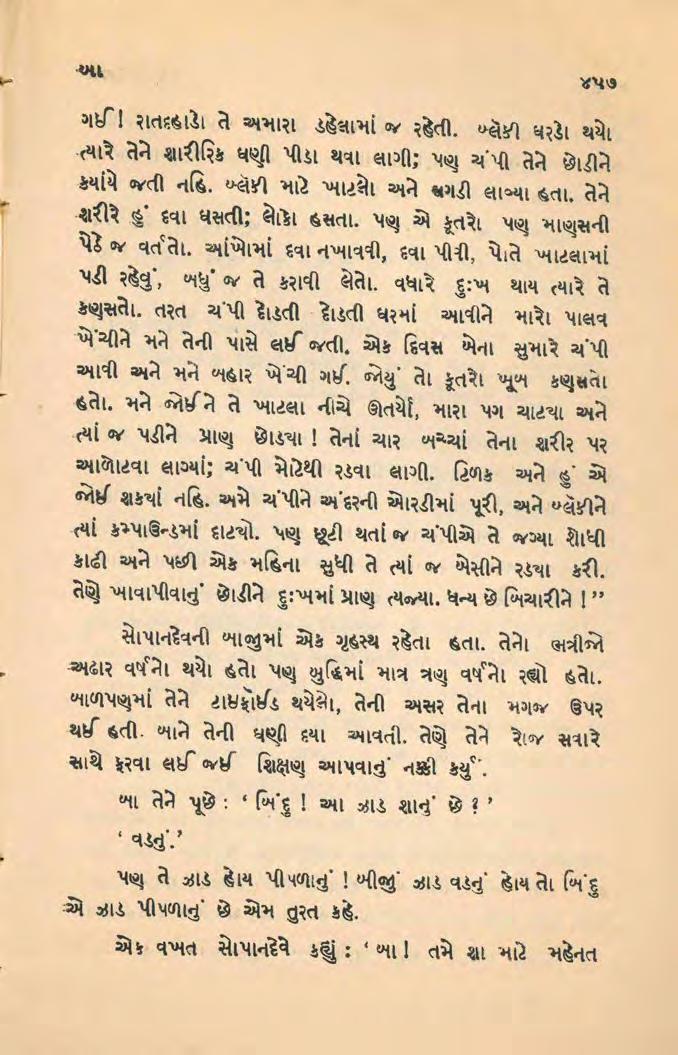 આ
૪૫૭
ગઈ! રાતદહાડો તે અમારા ડહેલામાં જ રહેતી. બ્લૅકી ઘરડો થયો
ત્યારે તેને શારીરિક ઘણી પીડા થવા લાગી; પણ ચંપી તેને છોડીને
કયાંયે જતી નહિ. બ્લૅકી માટે ખાટલો અને સગડી લાવ્યા હતા. તેને
શરીરે હું દવા ઘસતી; લોકો હસતા. પણ એ કૂતરો પણ માણસની
પેઠે જ વર્તતો. આંખોમાં દવા નખાવવી, દવા પીવી, પોતે ખાટલામાં
પડી રહેવું, બધું જ તે કરાવી લેતો. વધારે દુઃખ થાય ત્યારે તે
કણુસતો. તરત ચંપી દોડતી દોડતી ઘરમાં આવીને મારો પાલવ
ખેંચીને મને તેની પાસે લઈ જતી. એક દિવસ બેના સુમારે ચંપી
આવી અને મને બહાર ખેંચી ગઈ. જોયું તો કૂતરો ખૂબ કણુસતો
હતો. મને જોઈને તે ખાટલા નીચે ઊતર્યો, મારા પગ ચાટ્યા અને
ત્યાં જ પડીને પ્રાણ છોડયા! તેનાં ચાર બચ્ચાં તેના શરીર પર
આળોટવા લાગ્યાં; ચંપી મોટેથી રડવા લાગી. ટિળક અને હું એ
જોઈ શકયાં નહિ. અમે ચંપીને અંદરની ઓરડીમાં પૂરી, અને બ્લૅકીને
ત્યાં કમ્પાઉન્ડમાં દાટ્યો. પણ છૂટી થતાં જ ચંપીએ તે જગ્યા શોધી
કાઢી અને પછી એક મહિના સુધી તે ત્યાં જ બેસીને રડયા કરી.
તેણે ખાવાપીવાનું છોડીને દુઃખમાં પ્રાણ ત્યજ્યા. ધન્ય છે બિચારીને!”
સોપાનદેવની બાજુમાં એક ગૃહસ્થ રહેતા હતા. તેનો ભત્રીજો
અઢાર વર્ષનો થયો હતો પણ બુદ્ધિમાં માત્ર ત્રણ વર્ષનો રહ્યો હતો.
બાળપણમાં તેને ટાઈફૉઈડ થયેલો, તેની અસર તેના મગજ ઉપર
થઈ હતી. બાને તેની ઘણી દયા આવતી. તેણે તેને રોજ સવારે
સાથે ફરવા લઈ જઈ શિક્ષણ આપવાનું નક્કી કર્યું.
બા તેને પૂછે : ‘ બિંદુ ! આ ઝાડ શાનું છે ? ’
‘ વડનું.’
પણ તે ઝાડ હોય પીપળાનું ! બીજું ઝાડ વડનું હોય તો બિંદુ
એ ઝાડ પીપળાનું છે એમ તુરત કહે.
એક વખત સોપાનદેવે કહ્યું : ‘ બા ! તમે શા માટે મહેનત